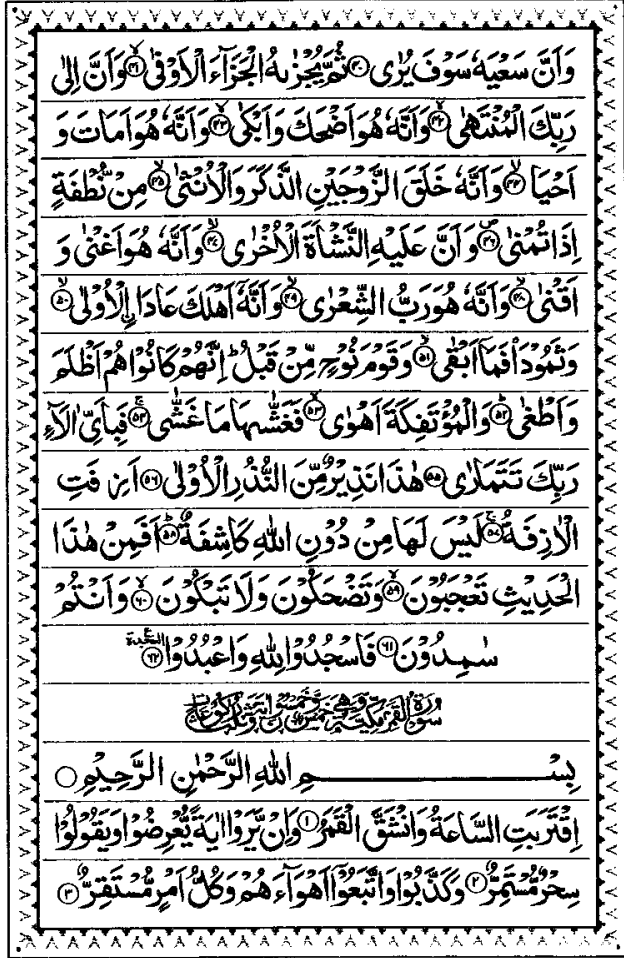 وَاَنَّ سَعْيَهٗ سَوْفَ يُرٰى ﴿۴۰﴾ ثُمَّ يُجْزٰىهُ الْجَزَآءَ الْاَوْفٰى ﴿۴۱﴾ وَاَنَّ اِلٰى
رَبِّكَ الْمُنْتَهٰى ﴿۴۲﴾ وَاَنَّهٗ هُوَ اَضْحَكَ وَاَبْكٰى ﴿۴۳﴾ وَاَنَّهٗ هُوَ اَمَاتَ وَ
اَحْيَا ﴿۴۴﴾ وَاَنَّهٗ خَلَقَ الزَّوْجَيْنِ الذَّكَرَ وَالْاُنْثٰى ﴿۴۵﴾ مِنْ نُّطْفَةٍ
اِذَا تُمْنٰى ﴿۴۶﴾ وَاَنَّ عَلَيْهِ النَّشْاَةَ الْاُخْرٰى ﴿۴۷﴾ وَاَنَّهٗ هُوَ اَغْنٰى وَ
اَقْنٰى ﴿۴۸﴾ وَاَنَّهٗ هُوَ رَبُّ الشِّعْرٰى ﴿۴۹﴾ وَاَنَّهٗۤ اَهْلَكَ عَادَا ِۨالْاُوْلٰى ﴿۵۰﴾
وَثَمُوْدَا۟ فَمَاۤ اَبْقٰى ﴿۵۱﴾ وَقَوْمَ نُوْحٍ مِّنْ قَبْلُ ؕ اِنَّهُمْ كَانُوْا هُمْ اَظْلَمَ
وَاَطْغٰى ﴿۵۲﴾ وَالْمُؤْتَفِكَةَ اَهْوٰى ﴿۵۳﴾ فَغَشّٰىهَا مَا غَشّٰى ﴿۵۴﴾ فَبِاَيِّ اٰلَآءِ
رَبِّكَ تَتَمَارٰى ﴿۵۵﴾ هٰذَا نَذِيْرٌ مِّنَ النُّذُرِ الْاُوْلٰى ﴿۵۶﴾ اَزِفَتِ
الْاٰزِفَةُ ﴿۵۷﴾ لَيْسَ لَهَا مِنْ دُوْنِ اللّٰهِ كَاشِفَةٌ ﴿۵۸﴾ اَفَمِنْ هٰذَا
الْحَدِيْثِ تَعْجَبُوْنَ ﴿۵۹﴾ وَتَضْحَكُوْنَ وَلَا تَبْكُوْنَ ﴿۶۰﴾ وَاَنْتُمْ
سٰمِدُوْنَ ﴿۶۱﴾ فَاسْجُدُوْا لِلّٰهِ وَاعْبُدُوْا ﴿۶۲﴾ السجدة
سُوْرَةُ الْقَمَرِ مَكِّيَّةٌ وَّهِيَ خَمْسٌ وَّخَمْسُوْنَ
بِسْمِ اللّٰهِ الرَّحْمٰنِ الرَّحِيْمِ
اِقْتَرَبَتِ السَّاعَةُ وَانْشَقَّ الْقَمَرُ ﴿۱﴾ وَاِنْ يَّرَوْا اٰيَةً يُّعْرِضُوْا وَيَقُوْلُوْا
سِحْرٌ مُّسْتَمِرٌّ ﴿۲﴾ وَكَذَّبُوْا وَاتَّبَعُوْۤا اَهْوَآءَهُمْ وَكُلُّ اَمْرٍ مُّسْتَقِرٌّ ﴿۳﴾